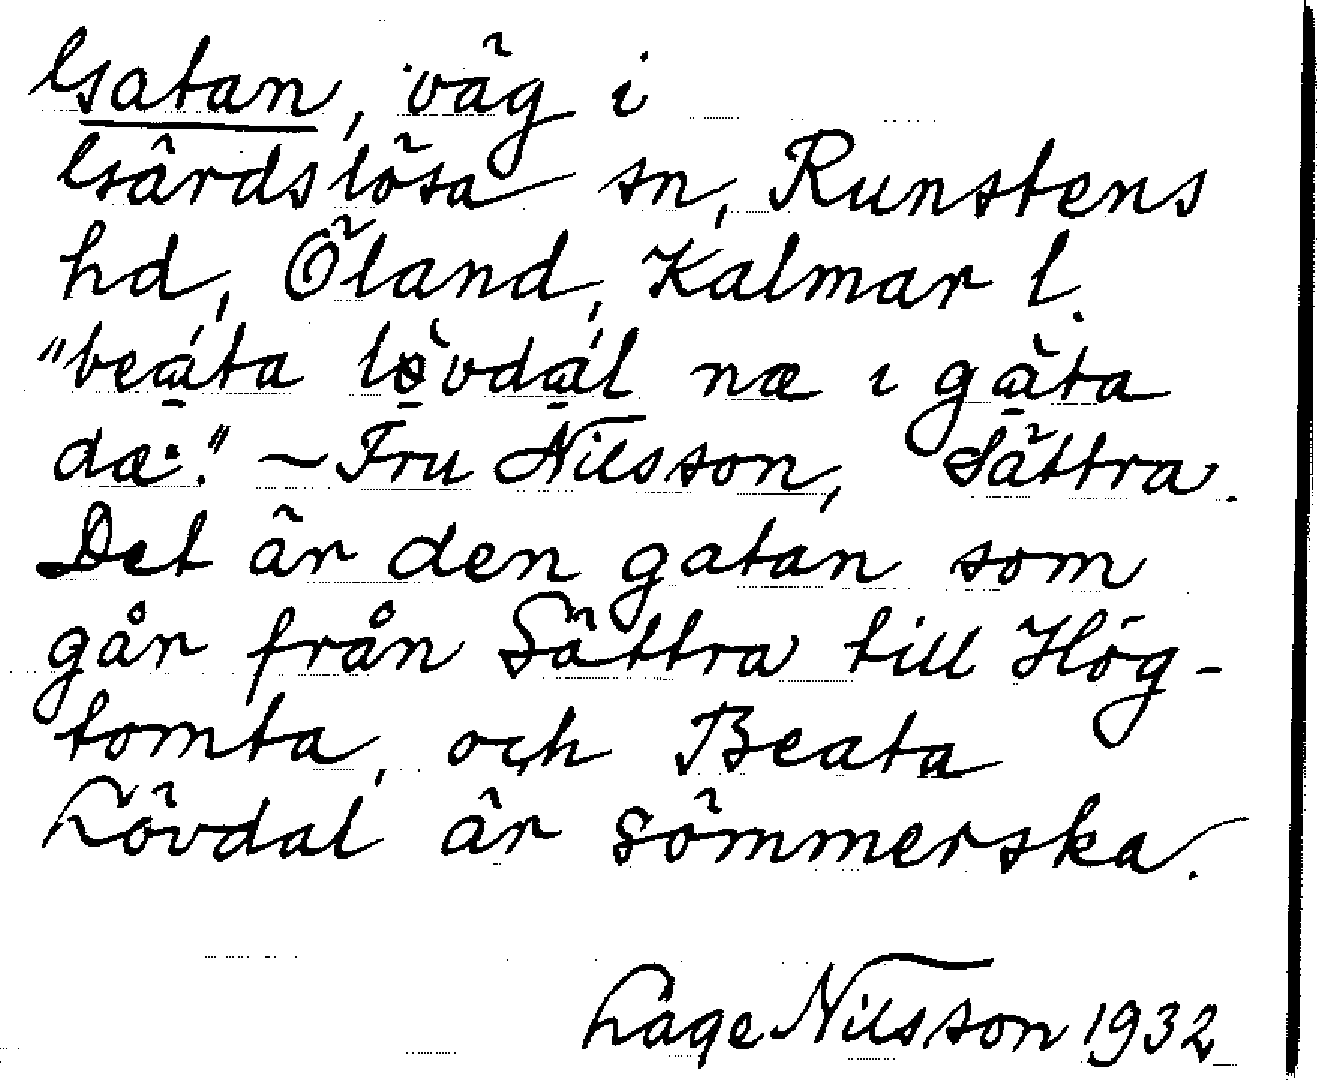 Gatan, väg i
Gärdslösa sn, Runstens
hd, Öland, Kalmar l.
"beáta lòvdál næ ɩ gàta
dæ·." – Fru Nilsson, Sättra.
Det är den gatan som
går från Sättra till Hög-
tomta, och Beata
Lövdal är sömmerska.
Lage Nilsson 1932